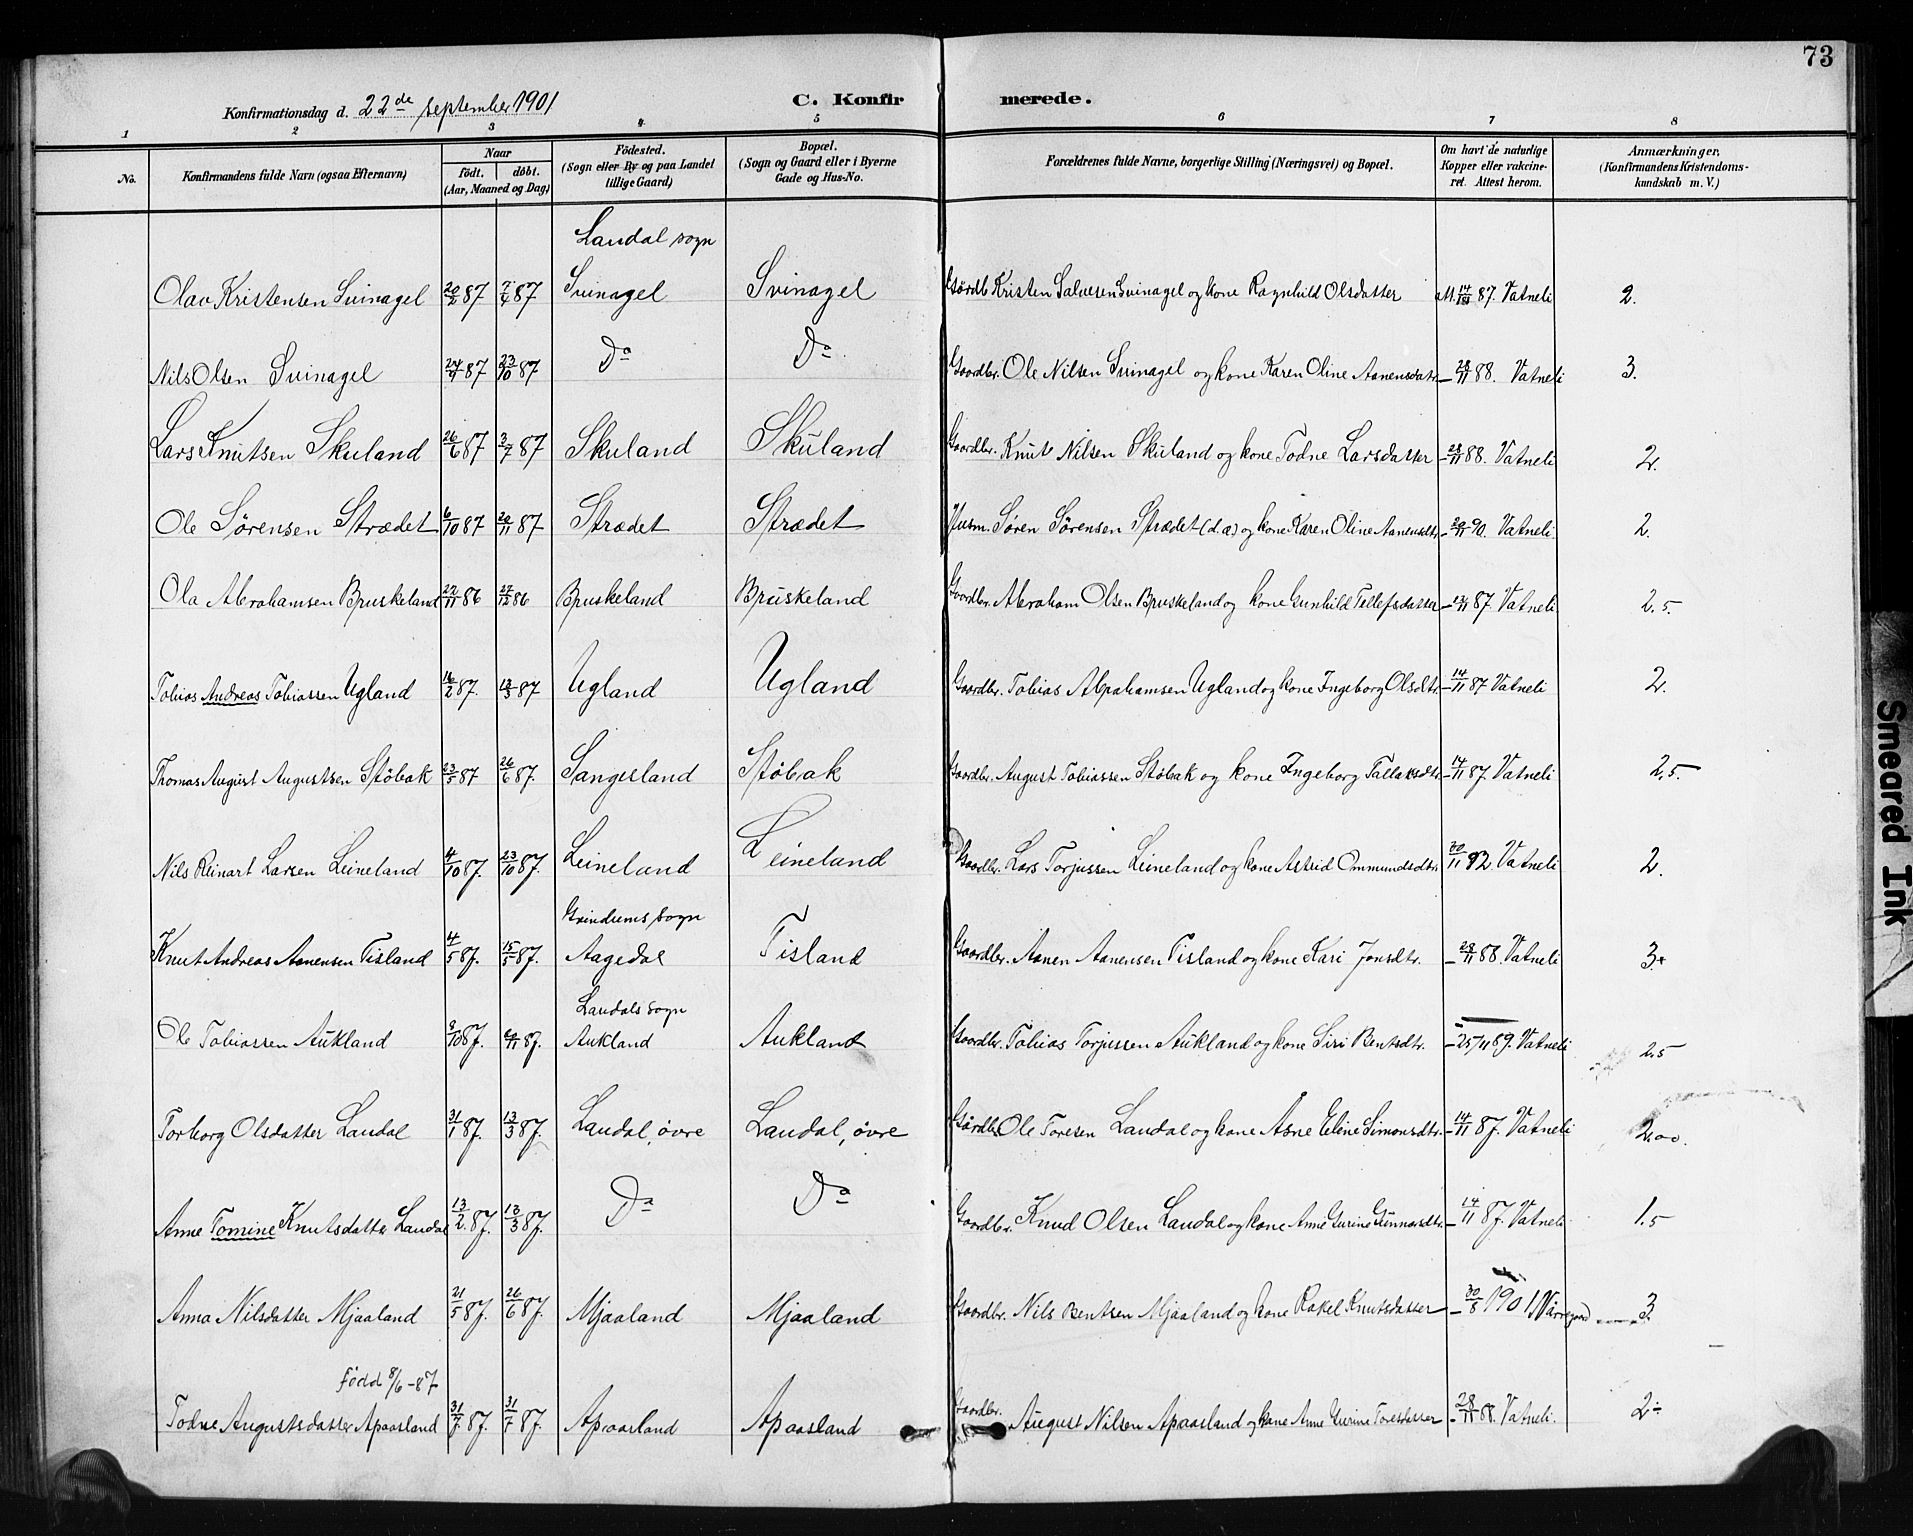 73
Konfirmationsdag d. 22de september 1901 C. Konfirmerede.
1 2 3 4 5 6 7 8
No. Konfirmandens fulde Navn (ogsaa Efternavn) Naar født. døbt. (Aar, Maaned og Dag) Fødested. (Sogn eller By og paa Landet tillige Gaard) Bopæl. (Sogn og Gaard eller i Byerne Gade og Hus-No.) Forældrenes fulde Navne, borgerlige Stilling (Næringsvei) og Bopæl. Om havt de naturlige Kopper eller vakcineret. Attest herom. Anmærkninger. (Konfirmandens Kristendomskundskab m. V.)
Laudal sogn
Olav Kristensen Svinagel 20/2 87 7/4 87 Svinagel Svinagel Gårdb. Kristen Salvesen Svinagel og kone Ragnhild Olsdatter att. 14/11 87. Vatneli 2.
Nils Olsen Svinagel 87 23/10 87 Do Do Gaardbr. Ole Nilsen Svinagel og kone Karen Oline Aanensdatr. - 28/11 88. Vatneli 3.
Lars Knutsen Skuland 26/6 87 3/7 87 Skuland Skuland Gaardbr. Knut Nilsen Skuland og kone Todne Larsdatter - 28/11 88. Vatneli 2.
Ole Sørensen Strædet 6/10 87 20/11 87 Strædet Strædet Husm. Søren Sørensen Strædet (d.æ) og kone Karen Oline Aanensdtr. - 20/11 90. Vatneli. 2.
Ola Abrahamsen Bruskeland 22/11 86 27/12 86 Bruskeland Bruskeland Gaardbr. Abraham Olsen Bruskeland og kone Gunhild Tellefsdatter - 12/11 87. Vatneli 2.5.
Tobias Andreas Tobiassen Ugland 16/2 87. 13/3 87 Ugland Ugland Gaardbr. Tobias Abrahamsen Ugland og kone Ingeborg Olsdtr. - 14/11 87 Vatneli 2.
Thomas August Augustsen Støbak 23/5 87 26/6 87. Sangesland Støbak Gaardbr. August Tobiassen Støbak og kone Ingeborg Tallaksdtr. - 14/11 87. Vatneli 2,5.
Nils Reinart Larsen Leineland 4/10 87. 23/10 87. Leineland Leineland Gaardbr. Lars Torjussen Leineland og kone Astrid Ommundsdtr. 30/11 92. Vatneli 2.
Grindums sogn
Knut Andreas Aanensen Tisland 4/5 87. 15/5 87. Aagedal Tisland Gaardbr. Aanen Aanensen Tisland og kone Kari Jonsdtr. - 28/11 88. Vatneli 3+
Laudals sogn
Ole Tobiassen Aukland 9/10 87. 6/11 87. Aukland Aukland Gaardbr. Tobias Torjussen Aukland og kone Siri Bentsdtr. - 25/11 89. Vatneli 2.5
Torborg Olsdatter Laudal 31/1 87. 13/3 87. Laudal, øvre Laudal, øvre Gårdbr. Ole Toresen Laudal og kone Åsne Eline Simonsdtr. - 14/11 87. Vatneli 2.00.
Anne Tomine Knutsdatter Laudal 13/2 87. 13/3 87. Do Do Gaardbr. Knud Olsen Laudal og kone Anne Gurine Gunnarsdtr. - 14/11 87. Vatneli 1.5
Anna Nilsdatter Mjaaland 21/5 87. 26/6 87. Mjaaland Mjaaland Gaardbr. Nils Bentsen Mjaaland og kone Rakel Knutsdatter - 30/8 1901. 3
Född 8/6-87
Todne Augustsdatter Apaasland 31/7 87. 31/7 87. Apaasland Apaasland Gaardbr. August Nilsen Apaasland og kone Anne Gurine Toresdatter - 28/11 88. Vatneli. 2-
Smeared Ink